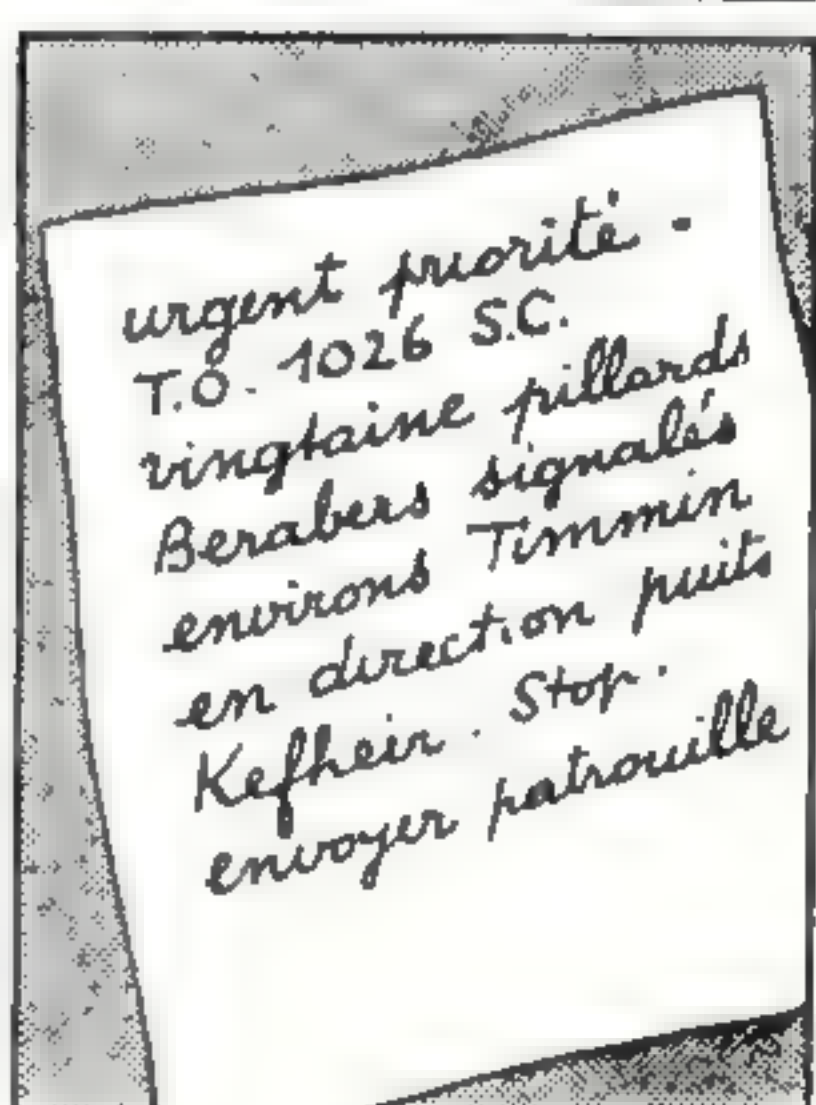 urgent priorité.
T.O. 1026 S.C.
vingtaine pillards
Berabers signalés
environs Timmin
en direction puits
Kefheir. Stop.
envoyer patrouille